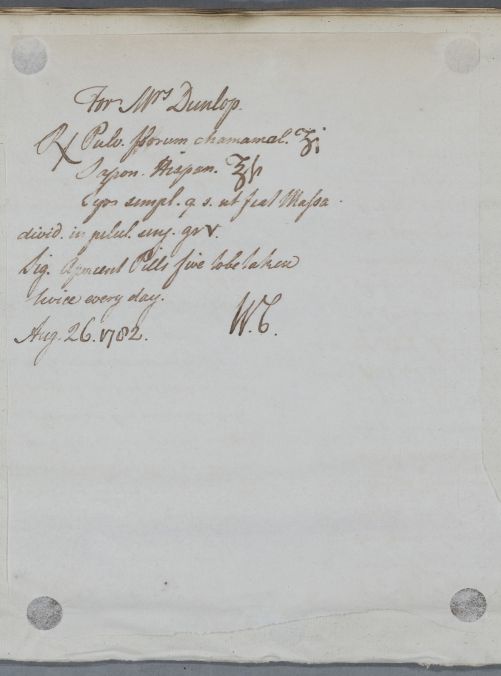 For Mrs Dunlop.
℞ Pulv. florum chamamel. ʒi
Sapon. Hispan. ʒſs
Syr. simpl. q. s. ut fiat Massa.
divid. in pilul. sing. gr v.
Sig. Aperient Pills five to be taken
twice every day.
W.C.
Aug. 26. 1782.